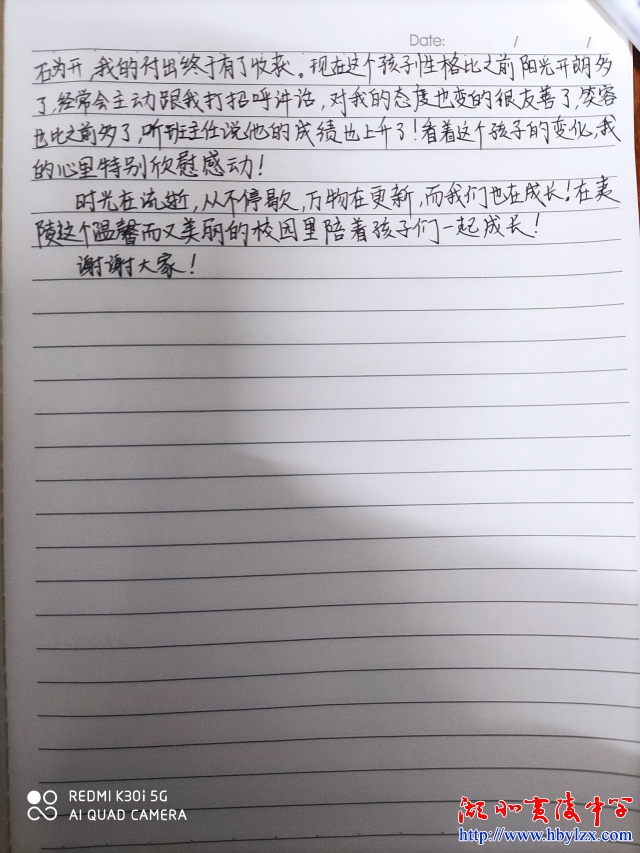 Date: / /
石为开，我的付出终于有了收获。现在这个孩子性格比之前阳光开朗多
了，经常会主动跟我打招呼讲话，对我的态度也变的很友善了，笑容
也比之前多了，听班主任说他的成绩也上升了！看着这个孩子的变化，我
的心里特别欣慰感动！
时光在流逝，从不停歇，万物在更新，而我们也在成长！在夷
陵这个温馨而又美丽的校园里陪着孩子们一起成长！
谢谢大家！
REDMI K30i 5G
AI QUAD CAMERA
湖北夷陵中学
http://www.hbylzx.com